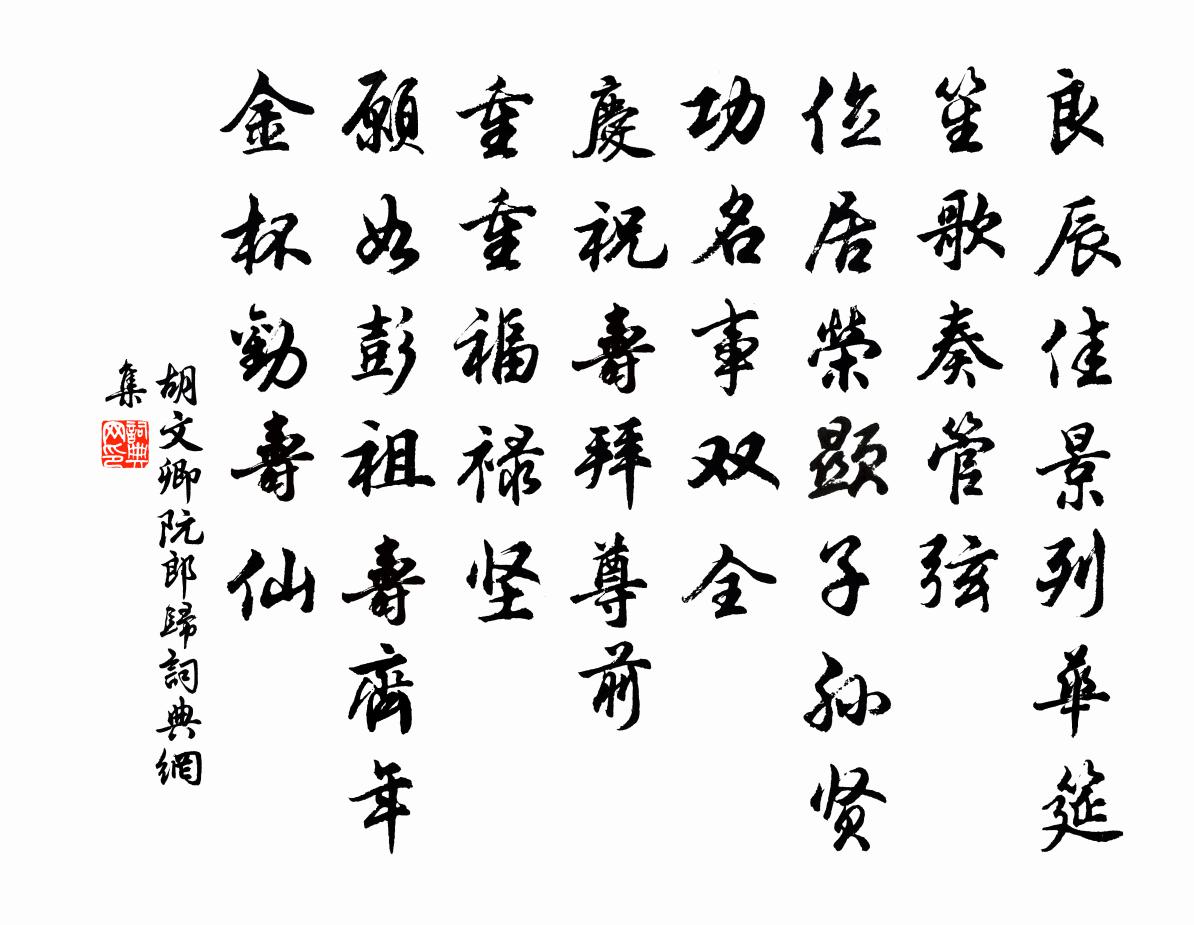 良辰佳景列華筵
笙歌奏管弦
位居榮顯子孙贤
功名事双全
慶祝壽拜尊前
重重福禄坚
願如彭祖壽齊年
金杯勸壽仙
胡文卿阮郎歸詞典網
集
詞典
网印